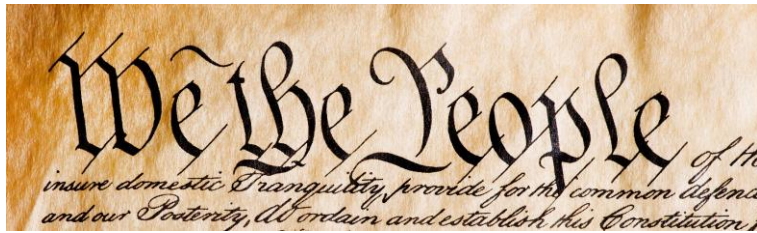 We the People of th
insure domestic Tranquility, provide for the common defenc
and our Posterity, do ordain and establish this Constitution f